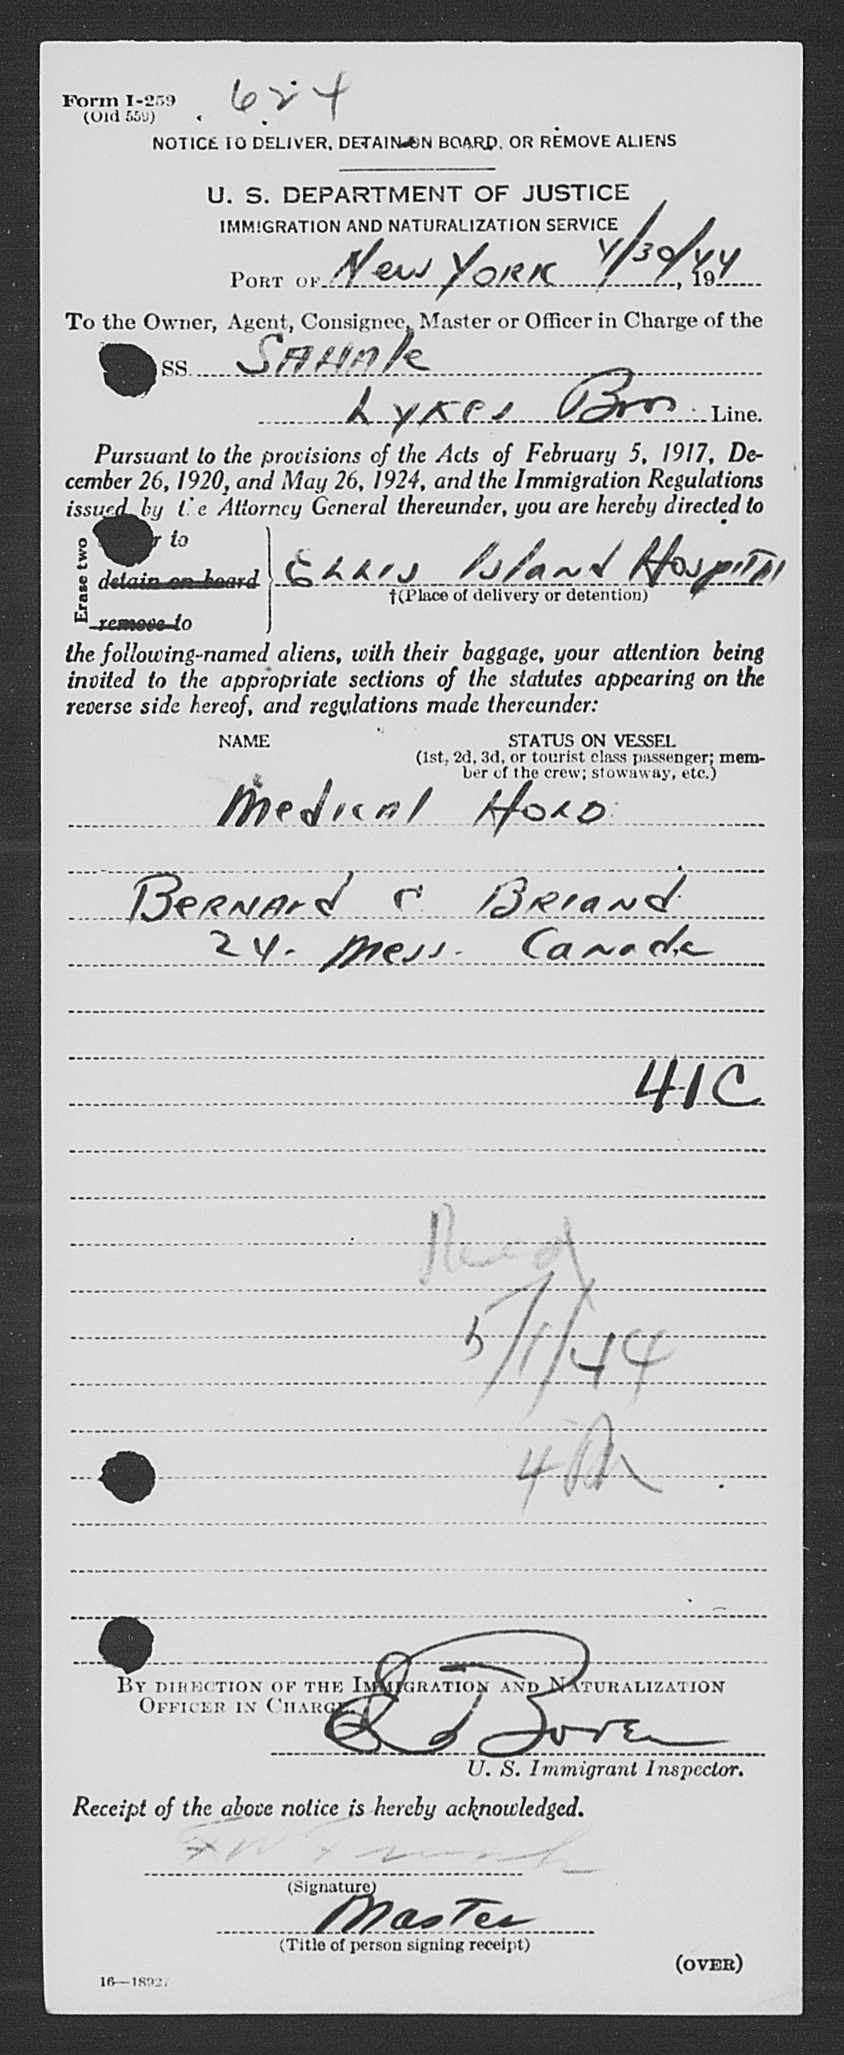 Form I-259
(Old 559)
624
NOTICE TO DELIVER, DETAIN ON BOARD, OR REMOVE ALIENS
U. S. DEPARTMENT OF JUSTICE
IMMIGRATION AND NATURALIZATION SERVICE
PORT OF New York 4/30/44, 19
To the Owner, Agent, Consignee, Master or Officer in Charge of the
SS.
Lykes Bros Line.
Pursuant to the provisions of the Acts of February 5, 1917, De-
cember 26, 1920, and May 26, 1924, and the Immigration Regulations
issued by the Attorney General thereunder, you are hereby directed to
Erase two
r to
detain on board
remove to
Ellis Island Hospital
†(Place of delivery or detention)
the following-named aliens, with their baggage, your attention being
invited to the appropriate sections of the statutes appearing on the
reverse side hereof, and regulations made thereunder:
NAME STATUS ON VESSEL
(1st, 2d, 3d, or tourist class passenger; mem-
ber of the crew; stowaway, etc.)
Medical Hold
Bernard C Briand
24. Mess. Canada
41C
5/1/44
BY DIRECTION OF THE IMMIGRATION AND NATURALIZATION
OFFICER IN CHARGE
U. S. Immigrant Inspector.
Receipt of the above notice is hereby acknowledged.
(Signature)
Master
(Title of person signing receipt)
(OVER)
16—18927